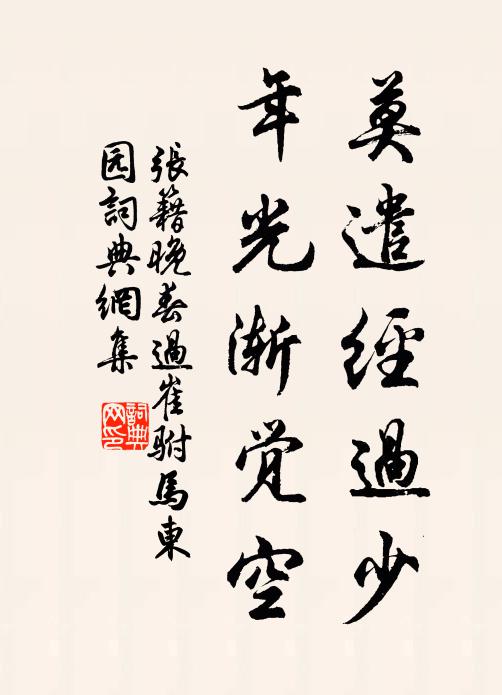 莫遣經過少
年光漸覚空
張籍晚春過崔駙馬東
园詞典網集
詞典网印